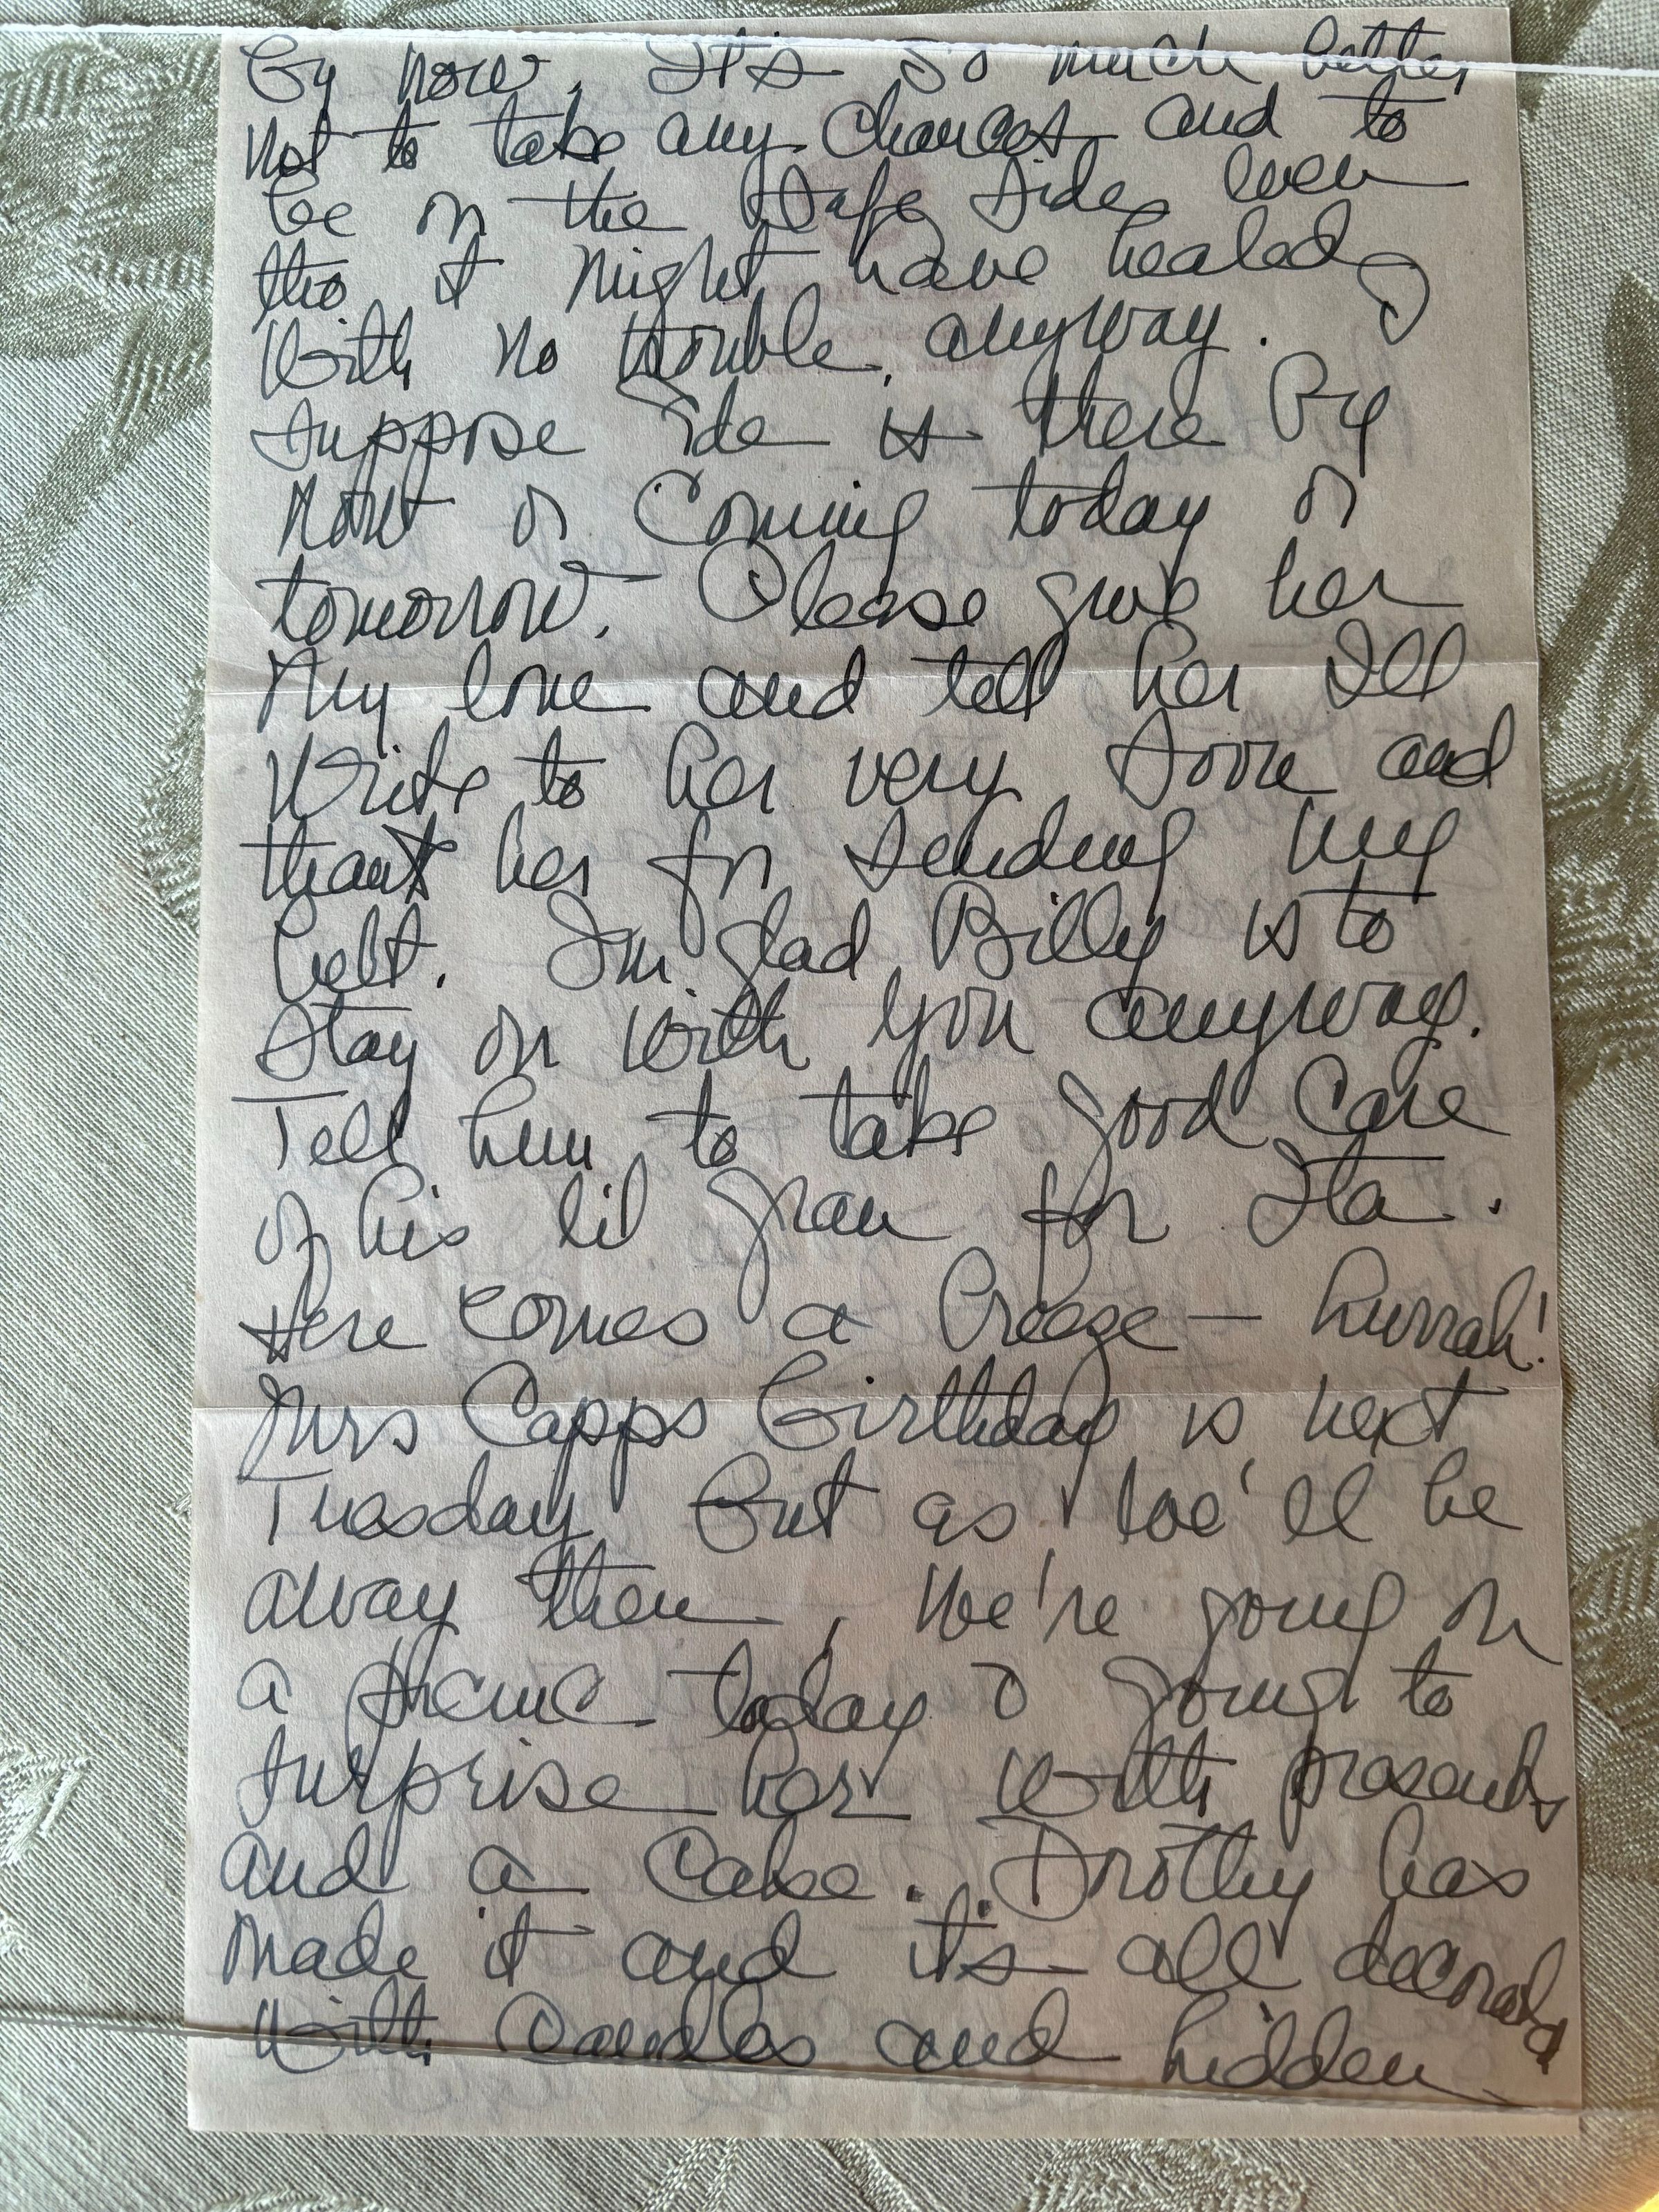 by now. It's so much better
not to take any chances and to
be on the safe side even
tho it might have healed
with no trouble, anyway. I
suppose Ide is there by
now or coming today or
tomorrow. Please give her
my love and tell her Ill
write to her very soon and
thank her for sending my
belt. Im glad Billy is to
stay on with you anyway.
Tell him to take good care
of his lil gran for Ita.
Here comes a breeze — hurrah!
Mrs Capps birthday is next
Tuesday but as we'll be
away then, we're going on
a picnic today & going to
surprise her with presents
and a cake. Dorothy has
made it and it's all decorated
with candles and hidden